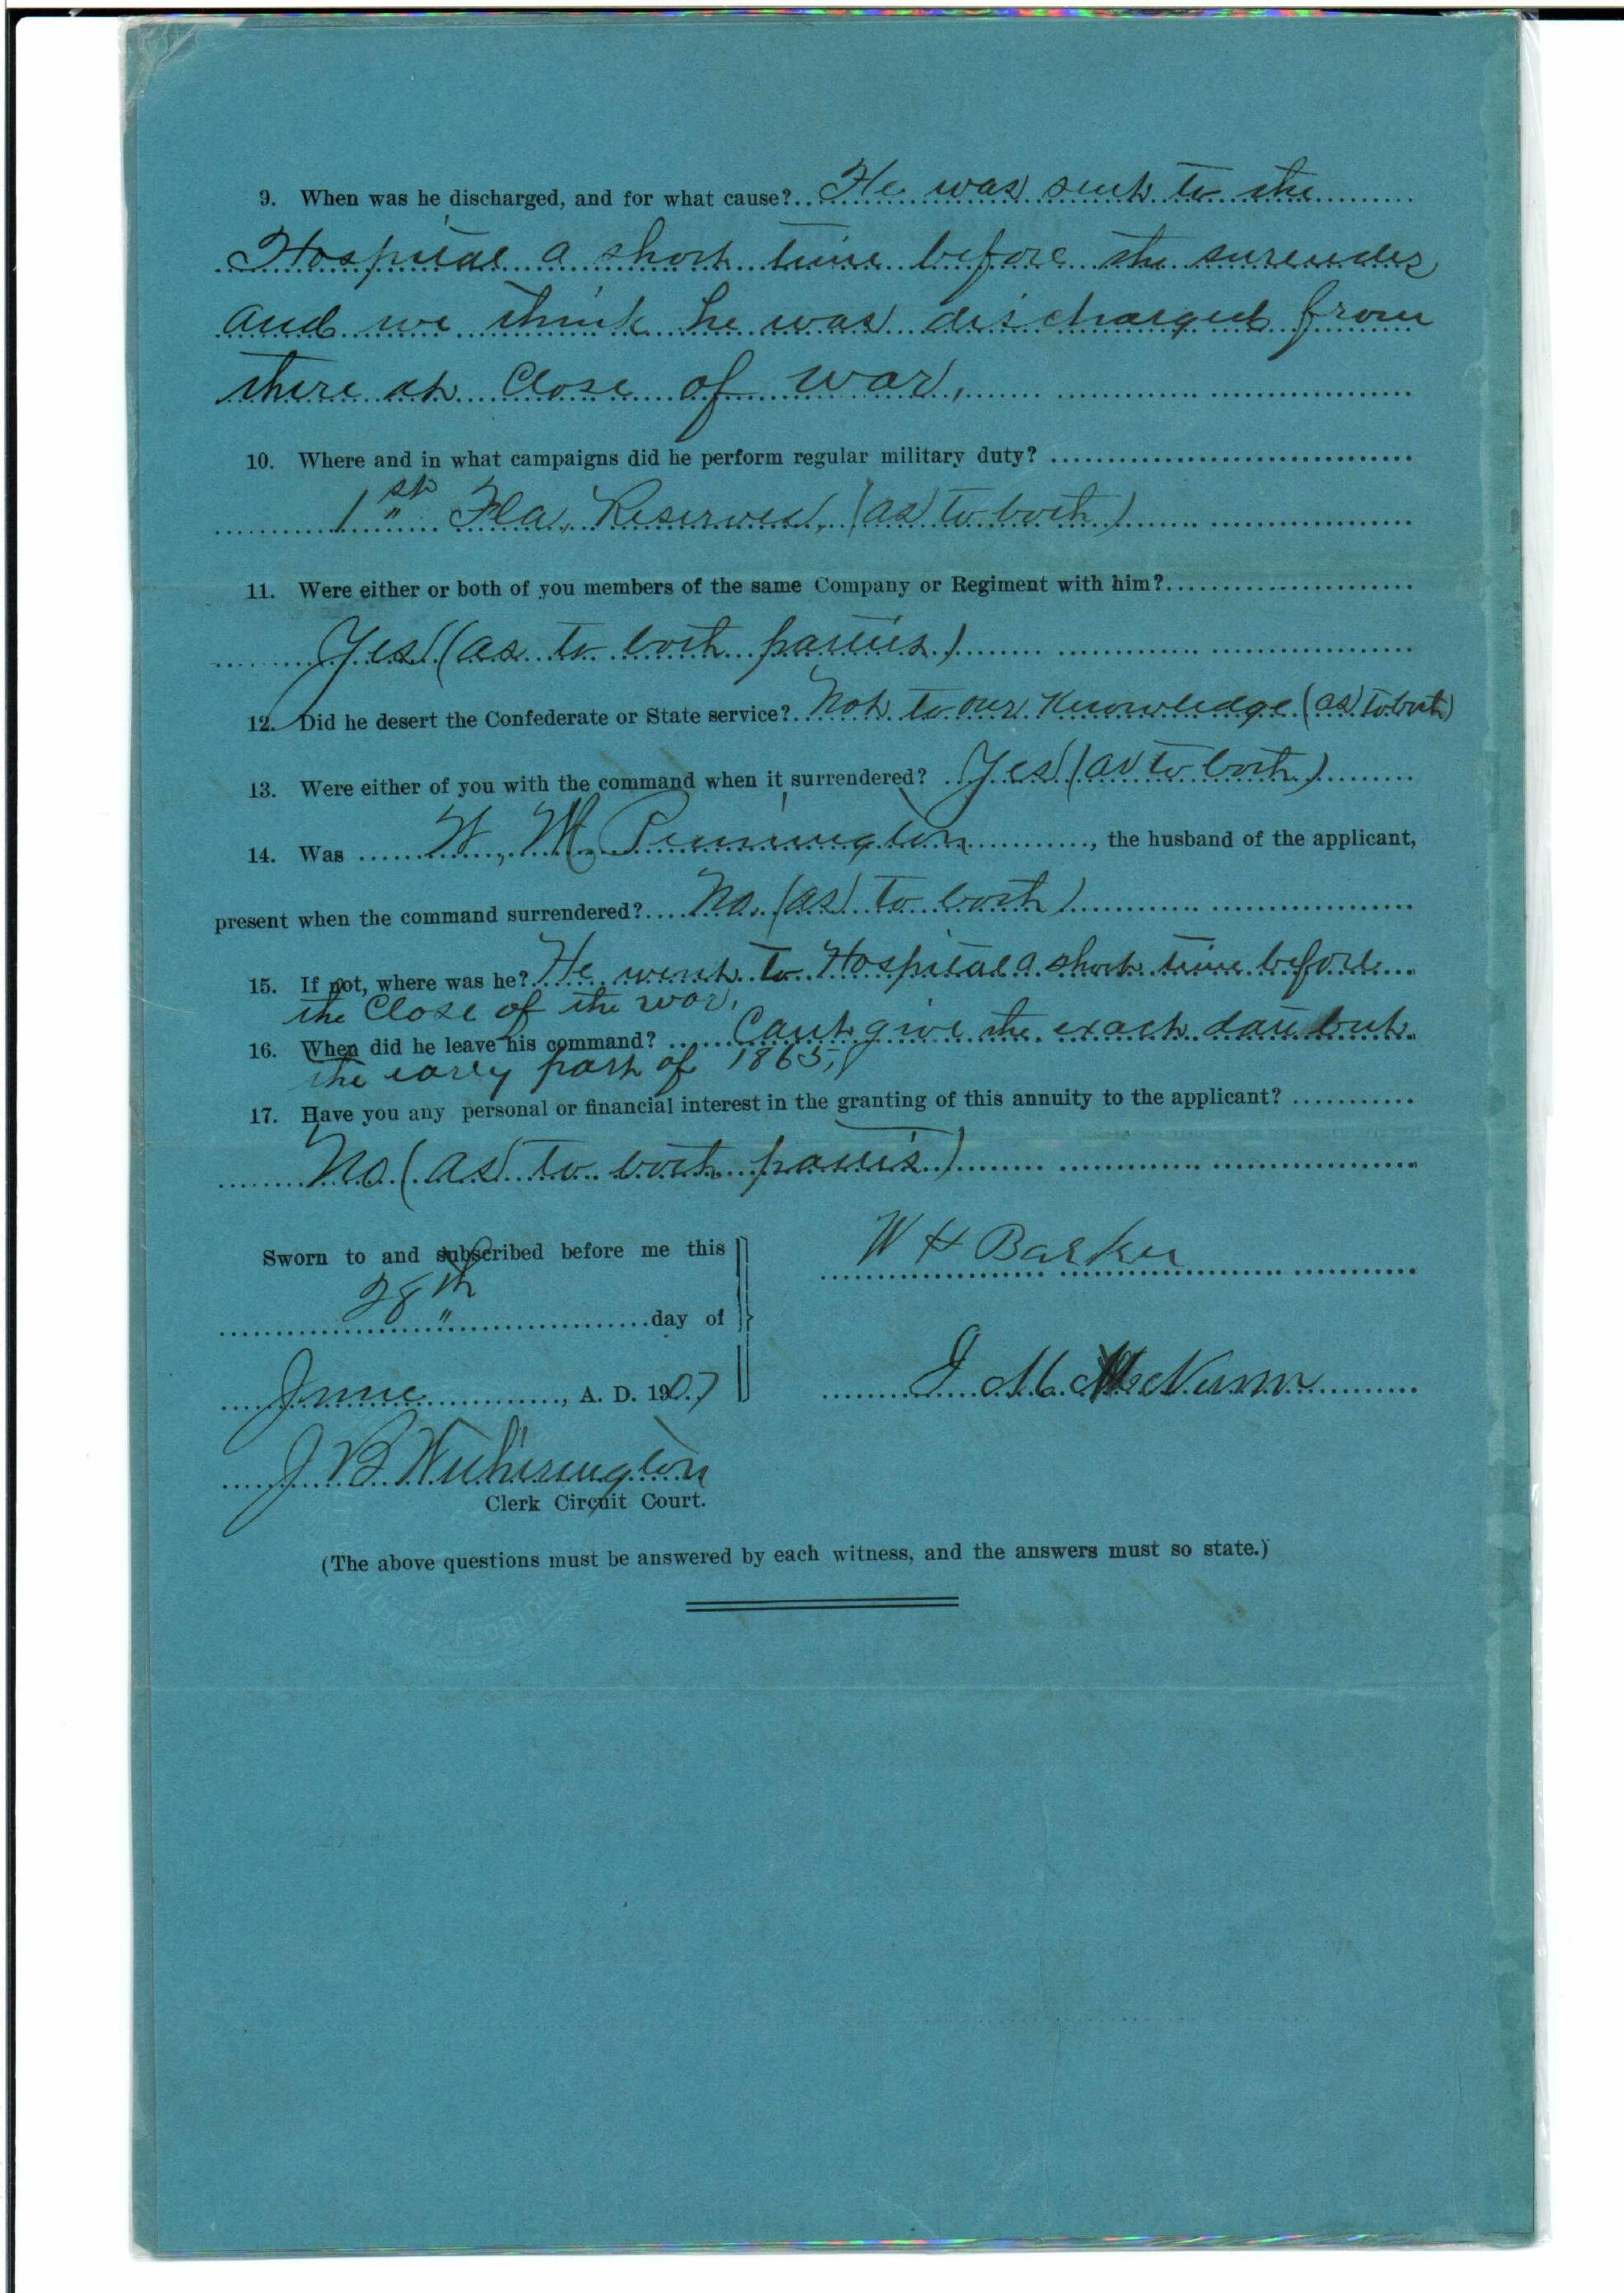 9. When was he discharged, and for what cause? He was sent to the
Hospital a short time before the surender
and we think he was discharged from
there at Close of war,
10. Where and in what campaigns did he perform regular military duty?
1st Fla, Reserves, (as to both)
11. Were either or both of you members of the same Company or Regiment with him?
Yes (as to both parties)
12. Did he desert the Confederate or State service? Not to our Knowledge (as to both)
13. Were either of you with the command when it surrendered? Yes (as to both)
14. Was W, M, Pennington, the husband of the applicant,
present when the command surrendered? No. (as to both)
15. If not, where was he? He went to Hospital a short time before
the Close of the war,
16. When did he leave his command? Cant give the exact date but
the early part of 1865,
17. Have you any personal or financial interest in the granting of this annuity to the applicant?
No (as to both parties)
Sworn to and subscribed before me this
28th day of
June, A. D. 1907
W H Barker
J M McNunn
J B Witherington
Clerk Circuit Court.
(The above questions must be answered by each witness, and the answers must so state.)